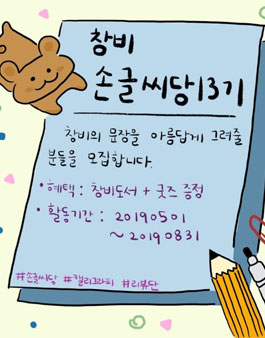 창비
손글씨당 13기
창비의 문장을 아름답게 그려줄
분들을 모집합니다.
• 혜택 : 창비도서 + 굿즈 증정
• 활동기간 : 20190501
~ 20190831
#손글씨당 #캘리그라피 #리뷰단